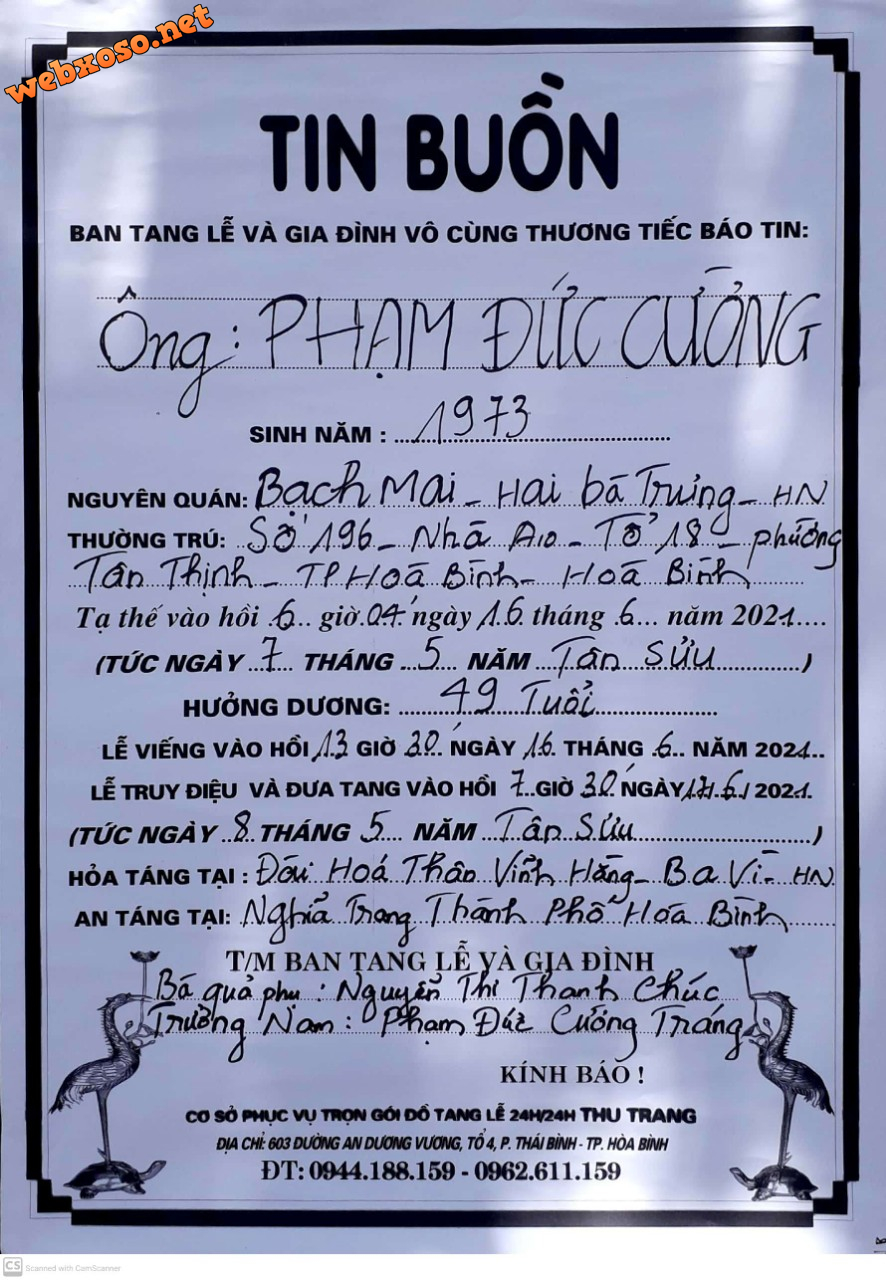 webxoso.net
TIN BUỒN
BAN TANG LỄ VÀ GIA ĐÌNH VÔ CÙNG THƯƠNG TIẾC BÁO TIN:
Ông: PHẠM ĐỨC CƯỜNG
SINH NĂM : 1973
NGUYÊN QUÁN: Bạch Mai - Hai bà Trưng - HN
THƯỜNG TRÚ: Số 196 - Nhà A10 - Tổ 18 - phường
Tân Thịnh - TP Hoà Bình - Hoà Bình
Tạ thế vào hồi 6 giờ 04' ngày 16 tháng 6 năm 2021
(TỨC NGÀY 7 THÁNG 5 NĂM Tân SỬU)
HƯỞNG DƯƠNG: 49 Tuổi
LỄ VIẾNG VÀO HỒI 13 GIỜ 30' NGÀY 16 THÁNG 6 NĂM 2021
LỄ TRUY ĐIỆU VÀ ĐƯA TANG VÀO HỒI 7 GIỜ 30' NGÀY 17/6/2021
(TỨC NGÀY 8 THÁNG 5 NĂM Tân Sửu)
HỎA TÁNG TẠI : Đài Hoá Thân Vĩnh Hằng - Ba Vì - HN
AN TÁNG TẠI: Nghĩa Trang Thành Phố Hoà Bình
T/M BAN TANG LỄ VÀ GIA ĐÌNH
Bà quả phụ : Nguyễn Thị Thanh Chúc
Trưởng Nam : Phạm Đức Cường Tráng
KÍNH BÁO !
CƠ SỞ PHỤC VỤ TRỌN GÓI ĐỒ TANG LỄ 24H/24H THU TRANG
ĐỊA CHỈ: 603 ĐƯỜNG AN DƯƠNG VƯƠNG, TỔ 4, P. THÁI BÌNH - TP. HÒA BÌNH
ĐT: 0944.188.159 - 0962.611.159
CS Scanned with CamScanner